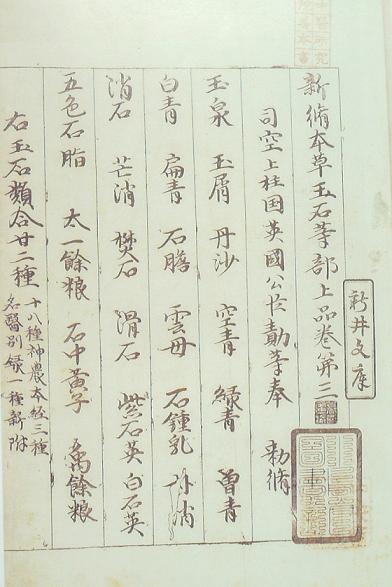 新脩本草玉石等部上品卷第三
司空上柱国英國公臣勣等奉 勅脩
玉泉 玉屑 丹沙 空青 緑青 曽青
白青 扁青 石膽 雲母 石鍾乳 朴消
消石 芒消 樊石 滑石 紫石英 白石英
五色石脂 太一餘粮 石中黄子 禹餘粮
右玉石類合廿二種 十八種神農本経三種
名醫別録一種新附
新井文庫